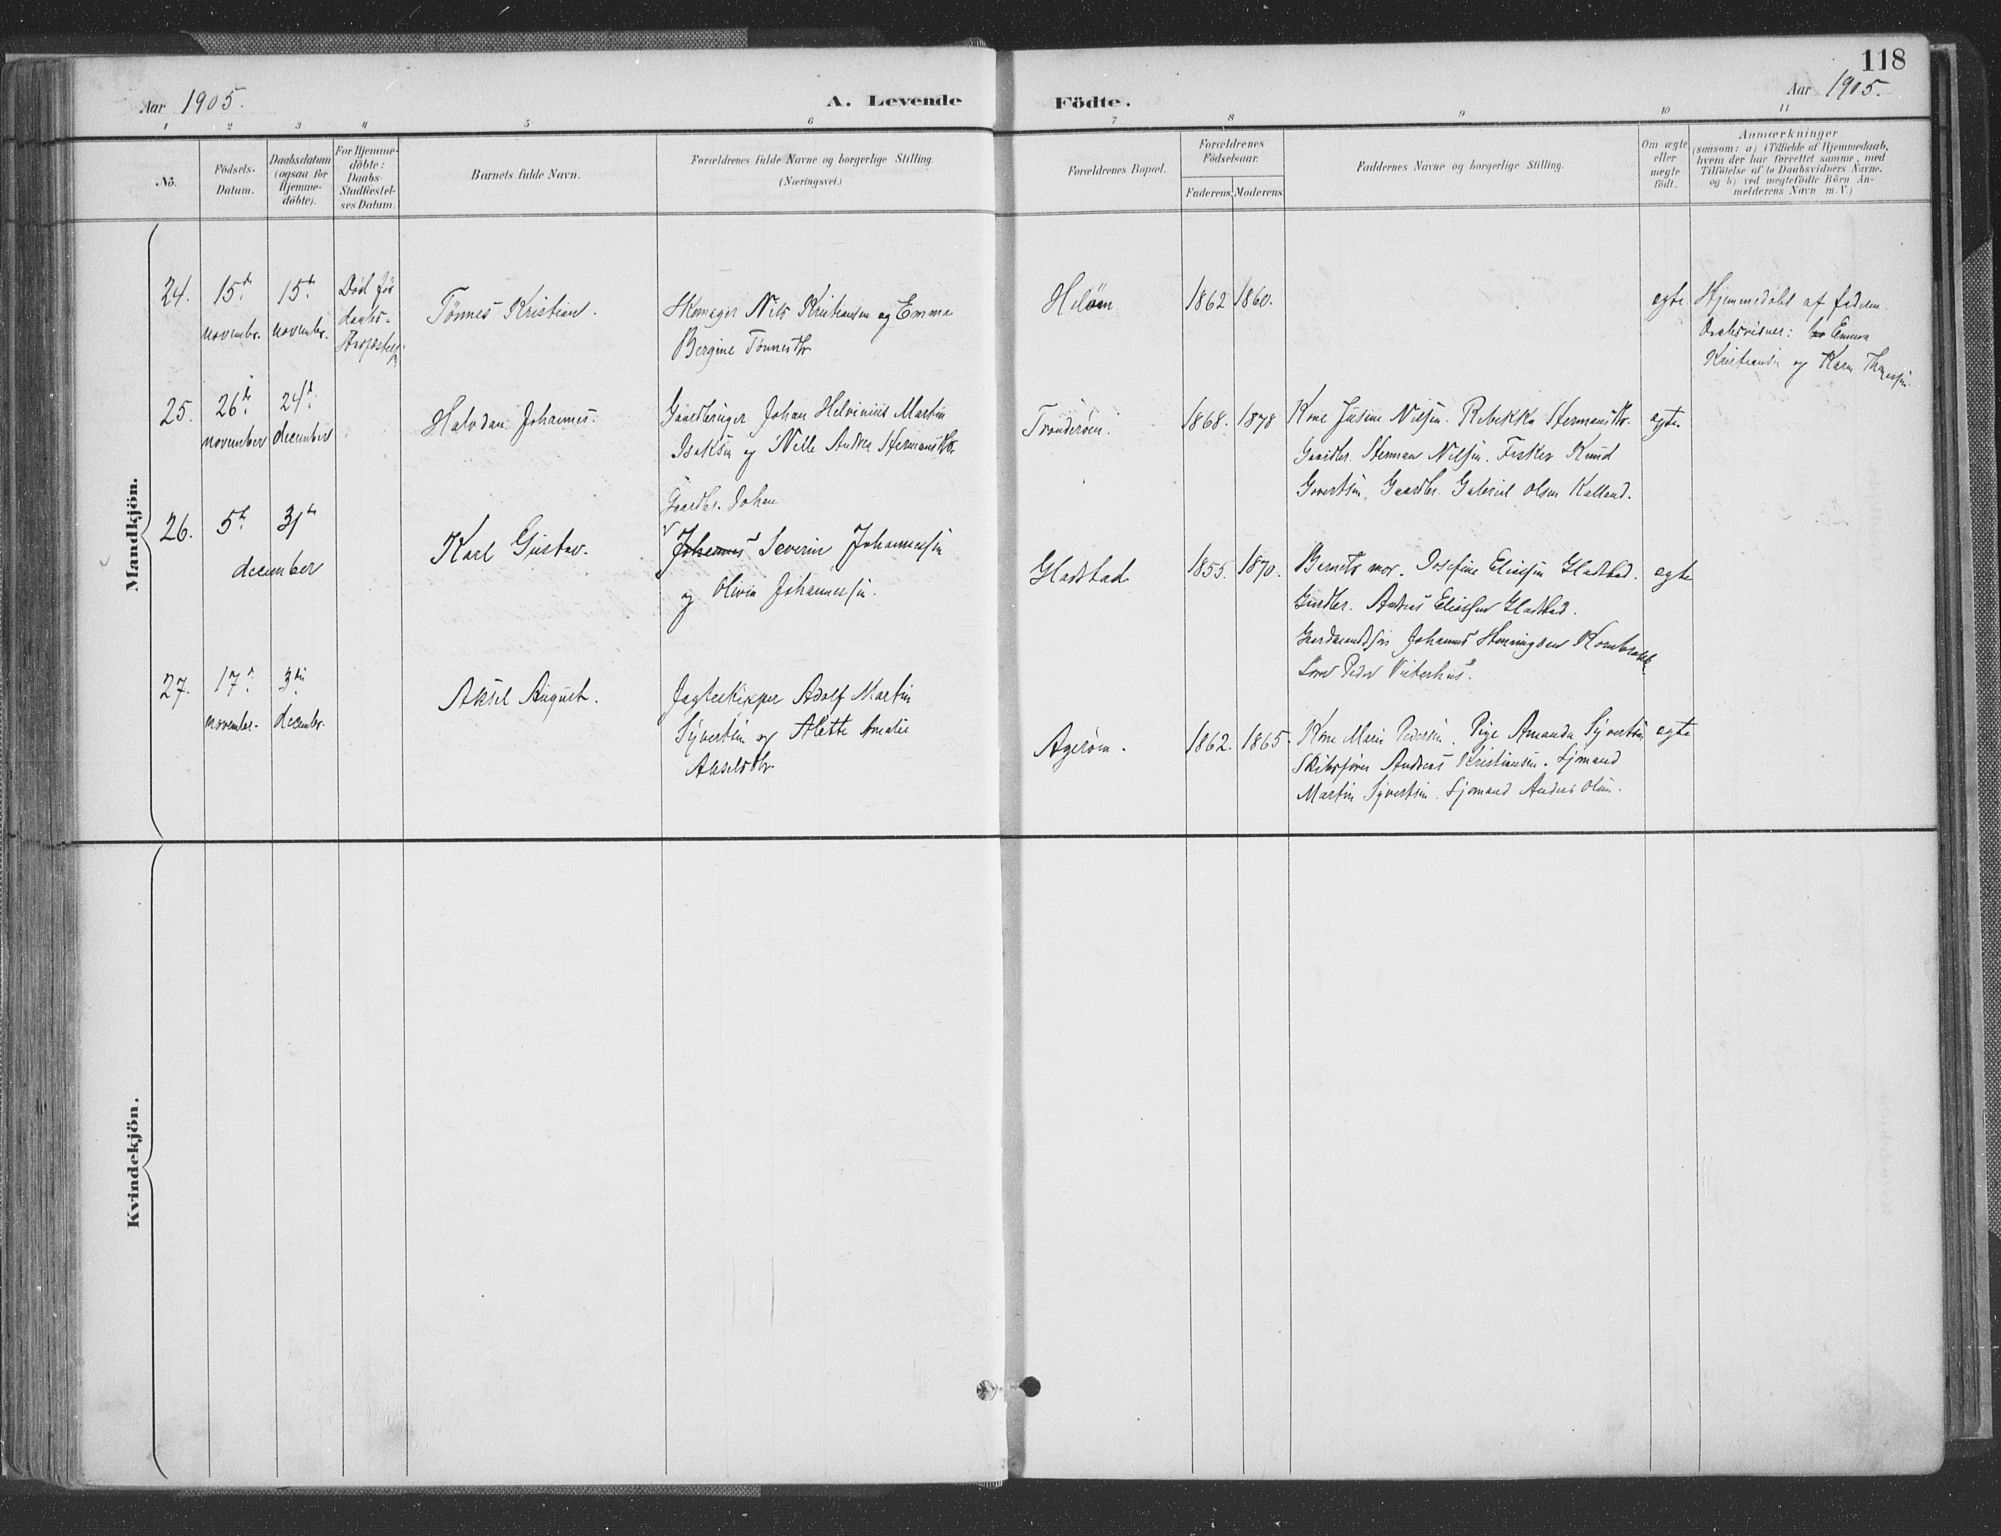 118
Aar 1905.
A. Levende Födte.
Aar 1905.
1 2 3 4 5 6 7 8 9 10 11
No.
Födsels-Datum.
Daabsdatum (ogsaa for Hjemme-döbte).
For Hjemme-döbte: Daabs-Stadfæstel-ses Datum.
Barnets fulde Navn.
Forældrenes fulde Navne og borgerlige Stilling.
(Næringsvei.)
Forældrenes Bopæl.
Forældrenes Födselsaar.
Faderens. Moderens.
Faddernes Navne og borgerlige Stilling.
Om ægte eller uægte födt.
Anmærkninger
(saasom: a) i Tilfælde af Hjemmedaab,
hvem der har forrettet samme, med
Tilföielse af to Daabsvidners Navne.
og b) ved uægtefödte Börn An-
melderens Navn m. V.)
Mandkjön.
24. 15de november. 15de november. Död før daabs-
Tønnes Kristian.
Skomager Nils Kristiansen og Emma
Bergine Tønnesdtr.
1862 1860.
egte
Hjemmedøbt af faderen.
Emma
Kristiansen og Karen
25. 26de november 24de december
Halvdan Johannes.
Gaardbruger Johan Helvinius Martin
Isaksen og Nille Andrea Hermansdtr.
Trønderøen.
1868. 1878
Kone Jusine Nilsen. Rebekka Hermansdtr.
Gaardbr. Herman Nilsen. Fisker Knud
Govertsen, Gaardbr. Gabriel Olsen Kalland.
egte.
26. 5te 31te
december
Karl Gustav.
Gaardbr. Johan
Johannes Severin Johannesen
og Olivia Johannesen.
Gladstad
1855. 1870.
Barnets mor. Josefine Eliasen Gladstad.
Gardbr. Andreas Eliassen Gladstad.
Johannes Henningsen
Peder
egte
27. 17de november. 3die decembr.
Aksel August.
Jagteskipper Adolf Martin
Syvertsen og Alette Amalie
Akselsdtr.
Agerøen.
1862. 1865.
Kone Marie Pedersen. Pige Amanda Syvertsen
Skibsfører Andreas Kristiansen. Sjømand
Martin Syvertsen. Sjømand Anders Olsen.
egte
Kvindekjön.